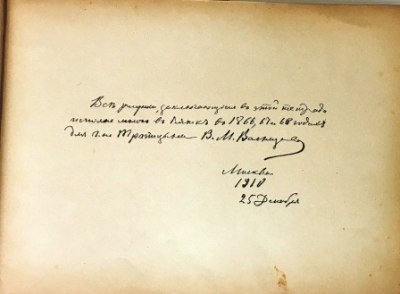 Всѣ рисунки, заключающіеся въ этой тетради
мною въ Вяткѣ въ 1867 и 68 годахъ
для В. М. Васнецовъ
Москва
1910
25 Декабря